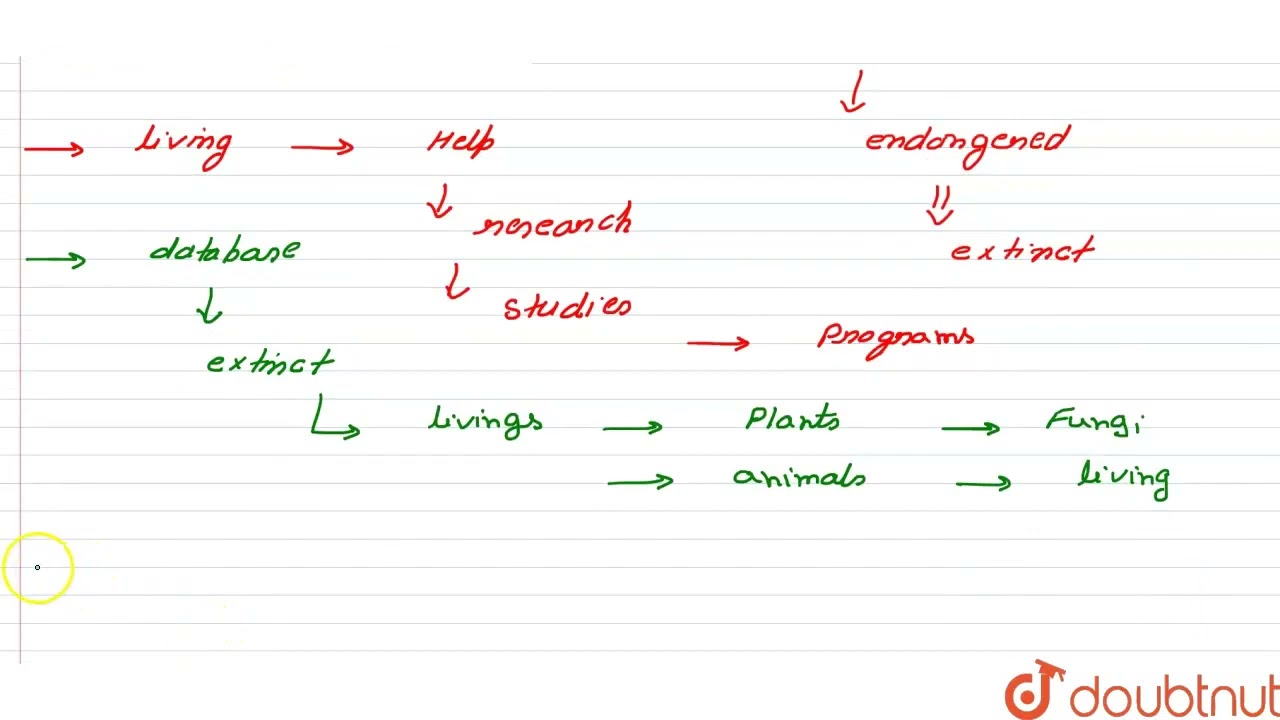 ↓
→ living → Help endangered
↓ ⇓
research
→ database extinct
↓
↓ studies
→ Programs
extinct
↳ livings → Plants → Fungi
→ animals → living
doubtnut